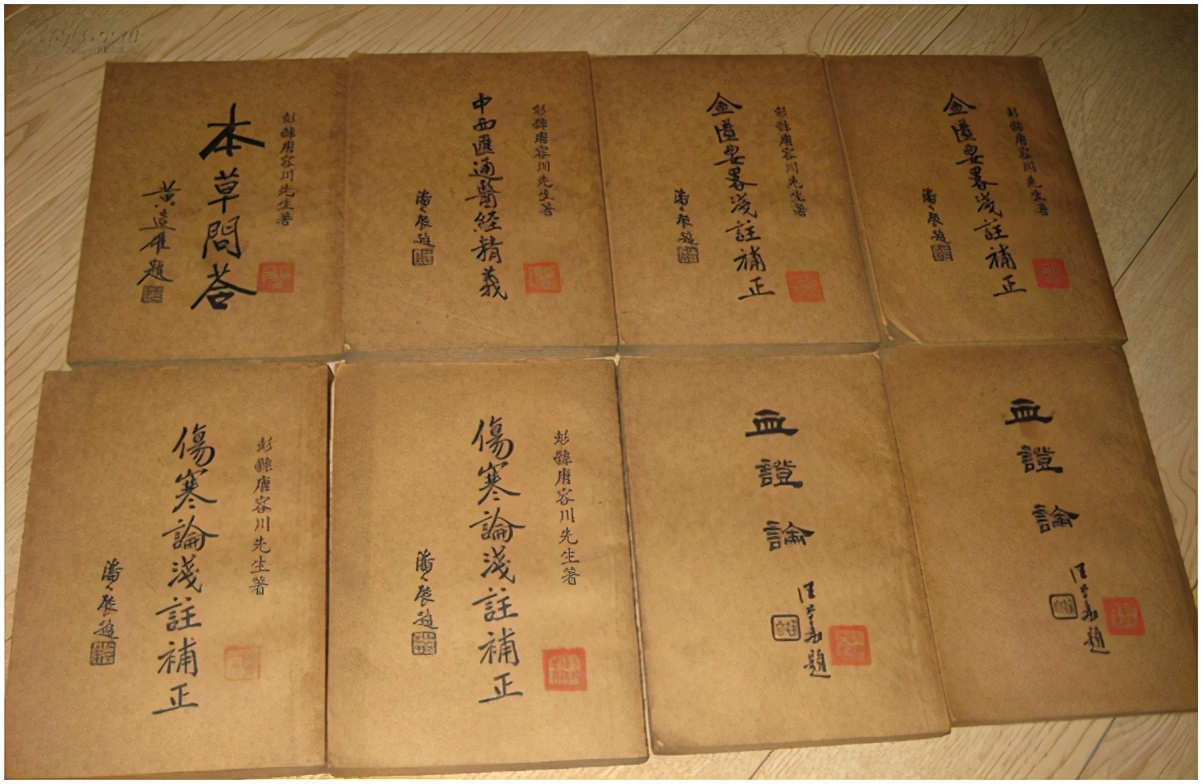 彭縣唐容川先生著
本草問荅
題
彭縣唐容川先生著
中西匯通醫經精義
潘公展題
彭縣唐容川先生著
金匱要畧淺註補正
潘公展題
彭縣唐容川先生著
金匱要畧淺註補正
潘公展題
彭縣唐容川先生著
傷寒論淺註補正
潘公展題
彭縣唐容川先生著
傷寒論淺註補正
潘公展題
血證論
題
血證論
題